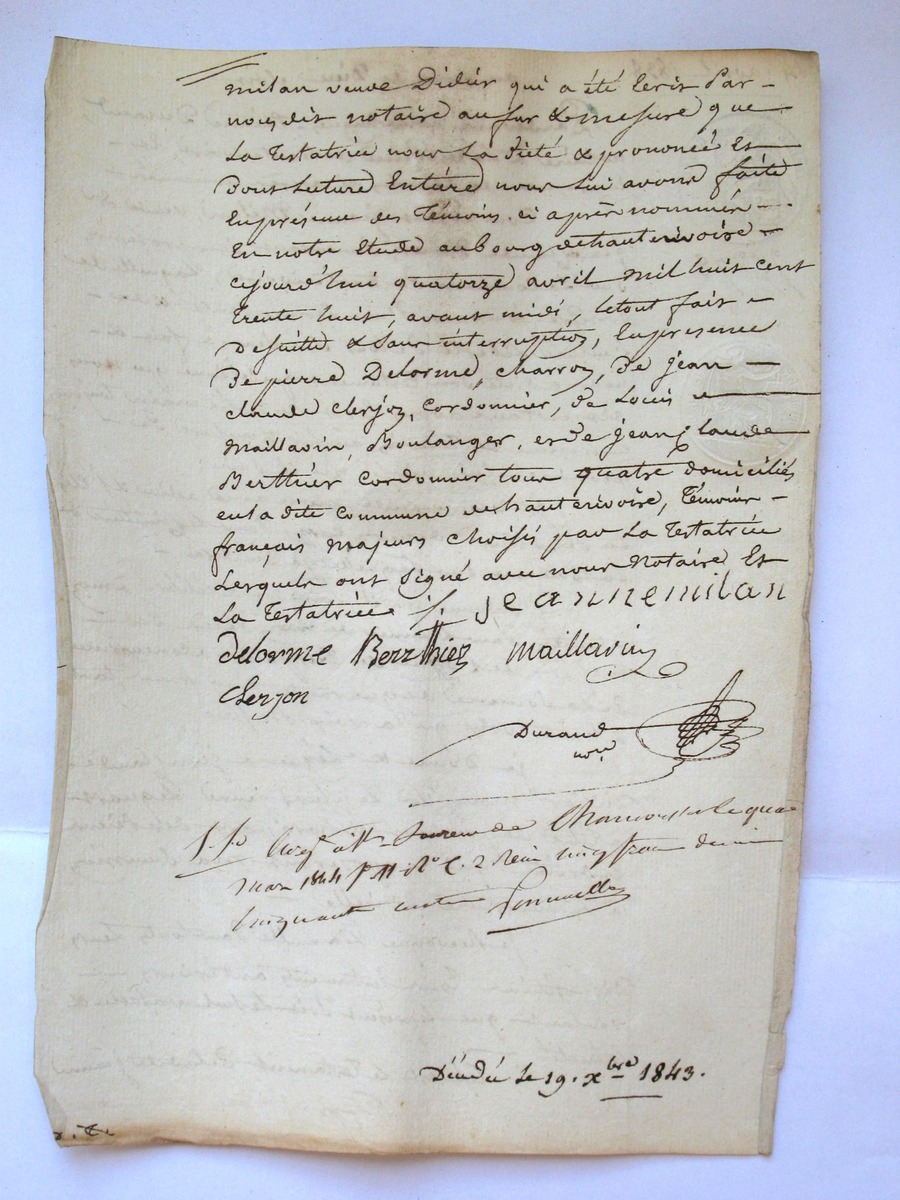 milan veuve Didier qui a été Ecrit Par
nous dit notaire au fur & mesure que
La Testatrice nous La dicté & prononcé Et
Dont Lecture Entiere nous Lui avons faite
En présence des Témoins ci après nommés
En notre Etude au bourg de hauterivoire
cejourd'hui quatorze avril mil huit cent
Trente huit, avant midi, le tout fait
De suitte & sans interruption, En presence
De pierre Delorme, charron, De jean
claude clerjon, cordonnier, De Louis
maillavin, Boulanger, et De jean claude
Berthier cordonnier tous quatre domiciliés
en la dite commune de hauterivoire, Témoins
français majeurs choisis par La Testatrice
Lesquels ont signé avec nous Notaire Et
La Testatrice ./. jeannemilan
delorme Berthier maillavin
Clerjon
Durand
nore
Enregé à St Laurent de Chamousset le quatre
mars 1844 fo C. 2 Reçu cinq francs decime
cinquante centimes
Décédée le 19. Xbre 1843.